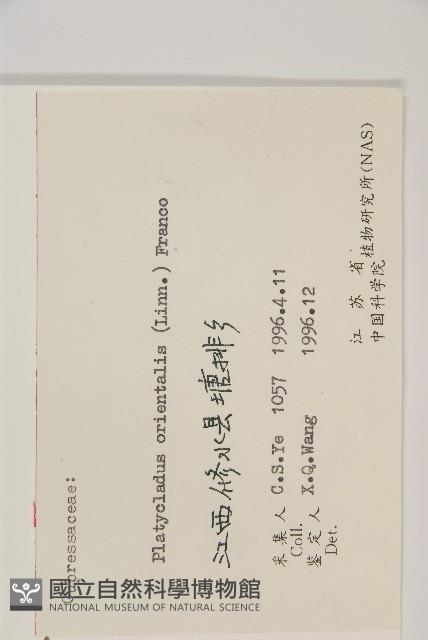 Cupressaceae:
Platycladus orientalis (Linn.) Franco
江西修水县塘排乡
采集人 C.S.Ye 1057 1996.4.11
Coll.
鉴定人 X.Q.Wang 1996.12
Det.
江苏省植物研究所(NAS)
中国科学院
國立自然科學博物館
NATIONAL MUSEUM OF NATURAL SCIENCE